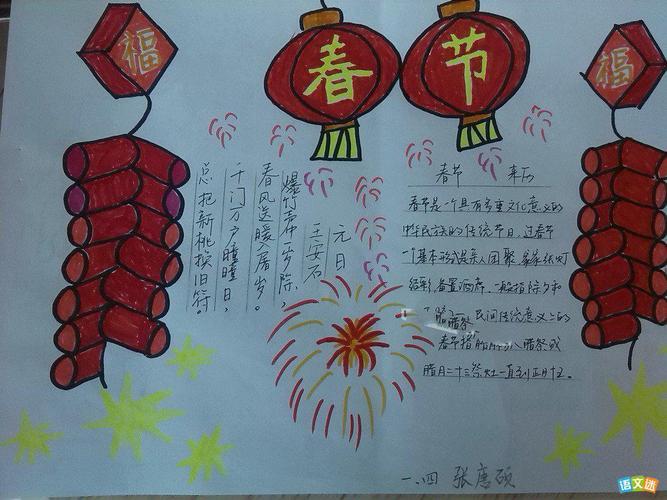 福
春节
福
元日
王安石
爆竹声一岁除,
春风送暖入屠岁。
千门万户曈曈日,
总把新桃换旧符。
春节 来历
春节是个具有多重文化意义的
中华民族的传统节日,过春节
一个基本形式是亲人团聚家家张灯
结彩备置酒席,一般指除夕和
腊祭 民间传统意义上的
春节指腊月初八腊祭或
腊月二十三祭灶一直到正月十五。
一、四 张唐硕
语文迷